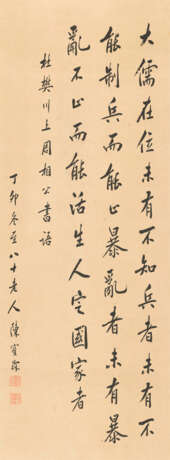 大儒在位未有不知兵者未有不
能制兵而能止暴亂者未有暴
亂不止而能活生人定國家者
杜樊川上周相公書語
丁卯冬至八十老人陳寶琛